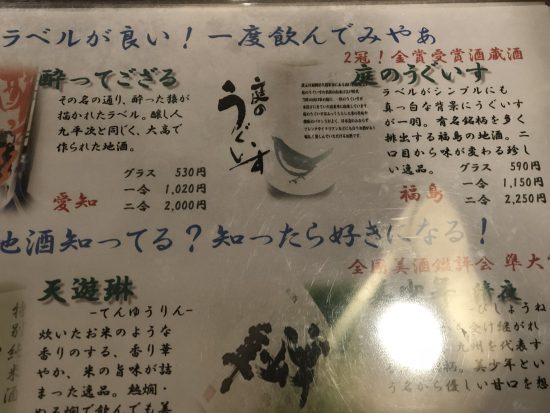 ラベルが良い！一度飲んでみやぁ
酔ってござる
その名の通り、酔った猿が
描かれたラベル。醸し人
九平次と同じく、大高で
作られた地酒。
グラス 530円
一合 1,020円
二合 2,000円
愛知
庭の
うぐいす
2冠！金賞受賞酒蔵酒
庭のうぐいす
ラベルがシンプルにも
真っ白な背景にうぐいす
が一羽。有名銘柄を多く
排出する福島の地酒。二
口目から味が変わる珍し
い逸品。
グラス 590円
一合 1,150円
二合 2,250円
福島
地酒知ってる？知ったら好きになる！
特別純米酒
天遊琳
-てんゆうりん-
炊いたお米のような
香りのする、香り華
やか、米の旨味が詰
まった逸品。熱燗・
ぬる燗で飲んでも美
全国美酒鑑評会 準大
美少年 清夜
-びしょうね
受け継がれ
九州を代表す
美少年とい
う名から優しい甘口を想